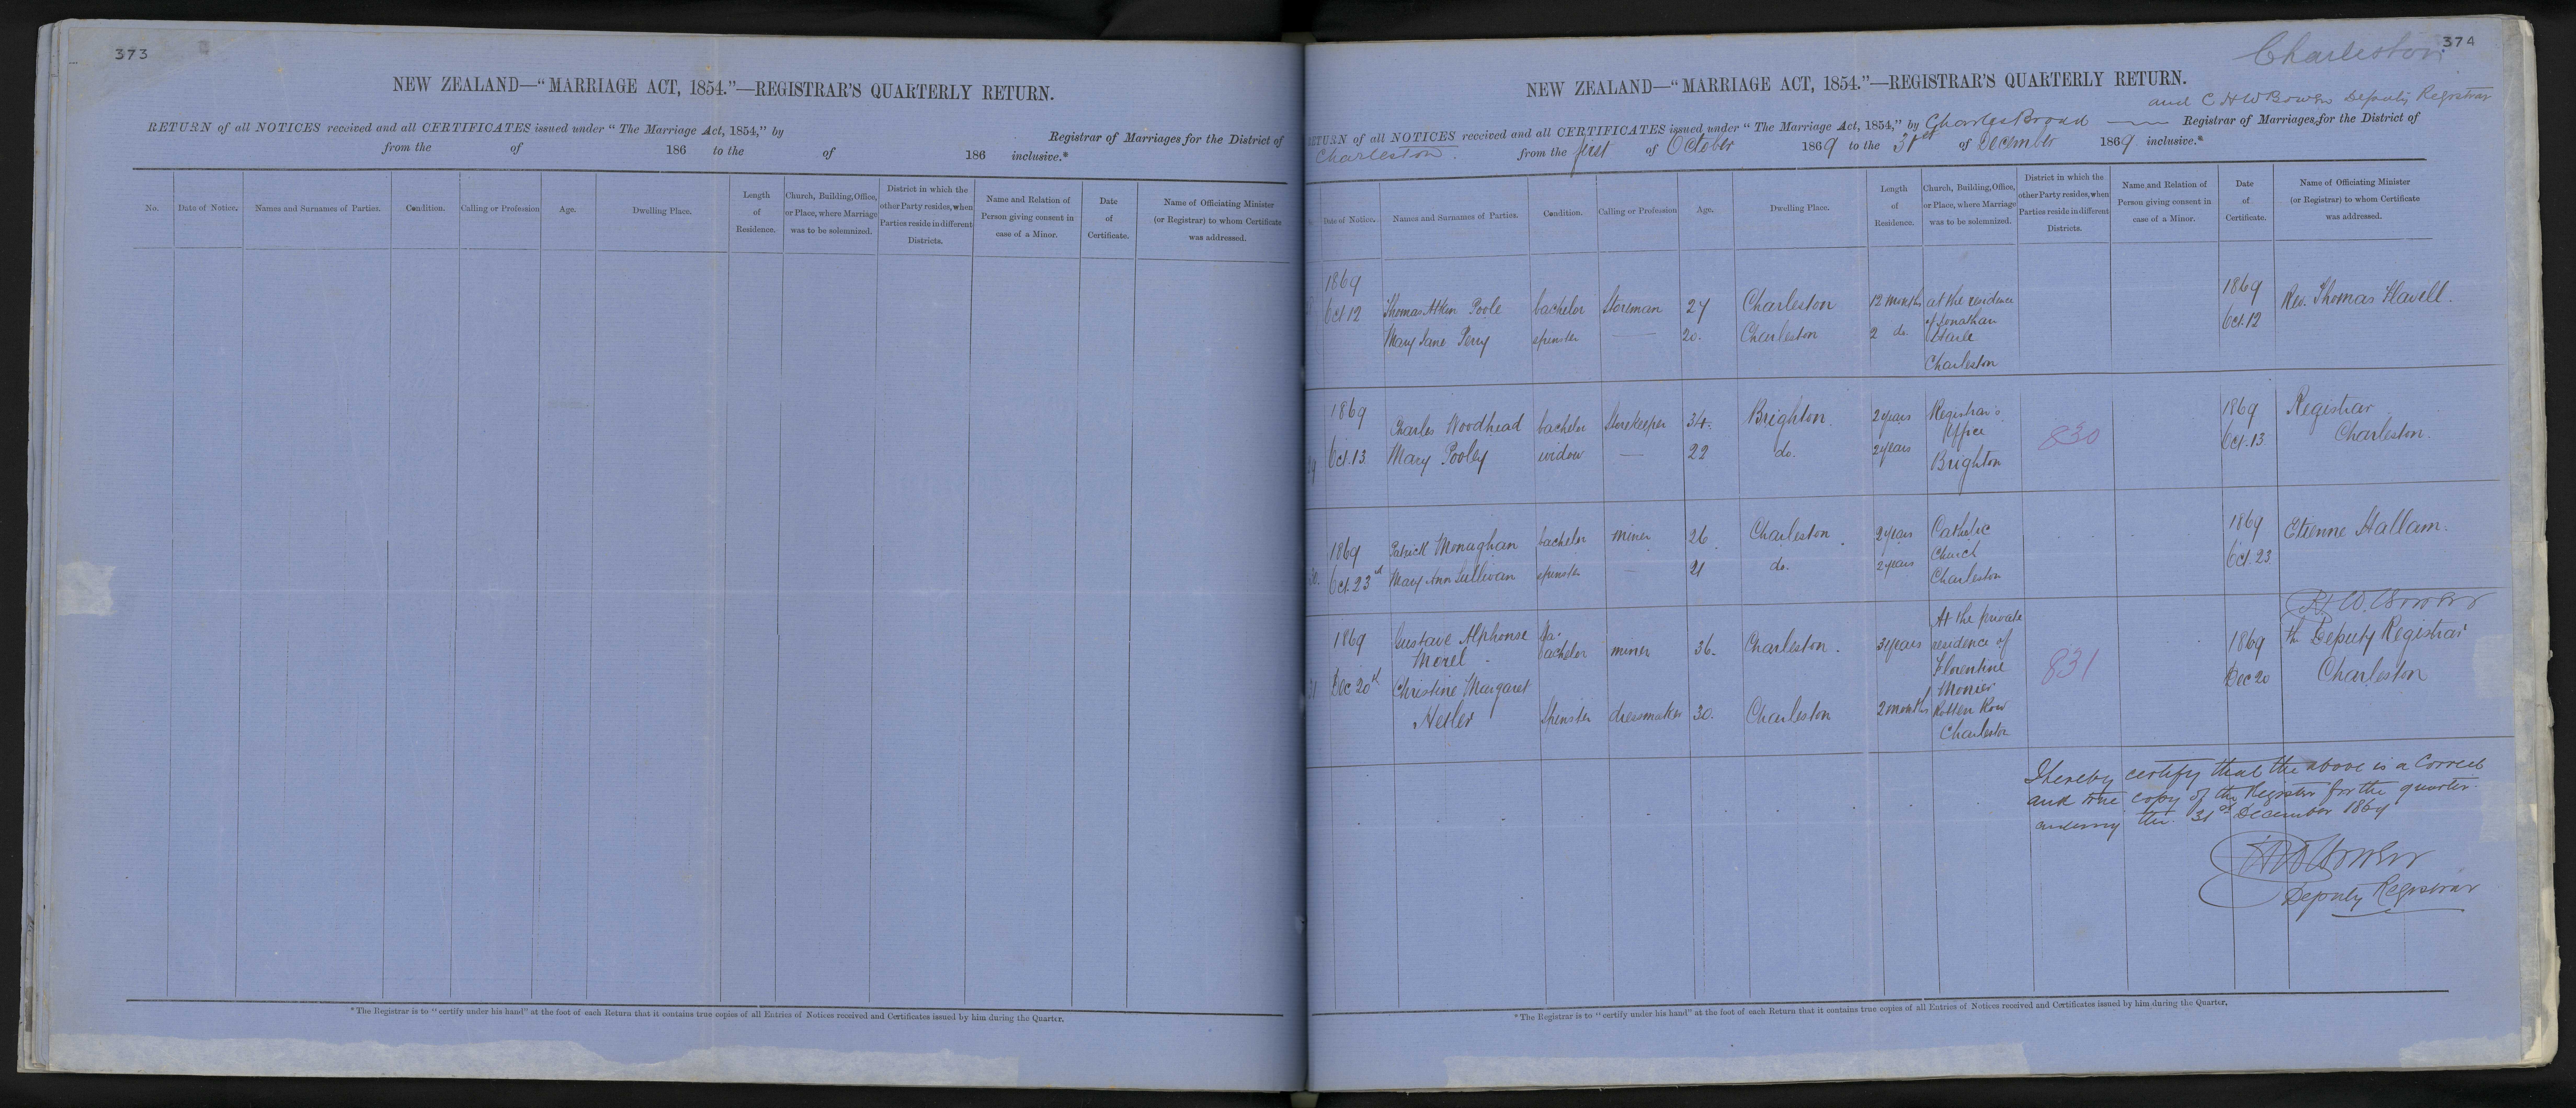 373
NEW ZEALAND—"MARRIAGE ACT, 1854."—REGISTRAR'S QUARTERLY RETURN.
RETURN of all NOTICES received and all CERTIFICATES issued under "The Marriage Act, 1854," by Registrar of Marriages for the District of
from the of 186 to the of 186 inclusive.*
No. Date of Notice. Names and Surnames of Parties. Condition. Calling or Profession Age. Dwelling Place. Length of Residence. Church, Building, Office, or Place, where Marriage was to be solemnized. District in which the other Party resides, when Parties reside in different Districts. Name and Relation of Person giving consent in case of a Minor. Date of Certificate. Name of Officiating Minister (or Registrar) to whom Certificate was addressed.
*The Registrar is to "certify under his hand" at the foot of each Return that it contains true copies of all Entries of Notices received and Certificates issued by him during the Quarter.
Charleston 374
NEW ZEALAND—"MARRIAGE ACT, 1854."—REGISTRAR'S QUARTERLY RETURN.
and C H W Bowen Deputy Registrar
RETURN of all NOTICES received and all CERTIFICATES issued under "The Marriage Act, 1854," by Charles Broad Registrar of Marriages for the District of
Charleston from the first of October 1869 to the 31st of December 1869 inclusive.*
Date of Notice. Names and Surnames of Parties. Condition. Calling or Profession Age. Dwelling Place. Length of Residence. Church, Building, Office, or Place, where Marriage was to be solemnized. District in which the other Party resides, when Parties reside in different Districts. Name and Relation of Person giving consent in case of a Minor. Date of Certificate. Name of Officiating Minister (or Registrar) to whom Certificate was addressed.
1869 1869
Oct 12 Thomas Aitken Poole bachelor Storeman 27 Charleston 12 months at the residence Oct. 12 Rev. Thomas Flavell.
of Jonathan
Mary Jane Perry spinster — 20. Charleston 2 do.
Charleston
1869 1869 Registrar
Charles Woodhead bachelor Storekeeper 34. Brighton. 2 years Registrar's Office 830 Charleston.
Oct. 13. Mary Pooley widow — 22 do. 2 years Brighton Oct. 13
1869 Patrick Monaghan bachelor miner 26. Charleston. 2 years Catholic Church 1869 Etienne Hallam.
Oct. 23rd Mary Ann Sullivan spinster — 21 do. 2 years Charleston Oct. 23
1869 Gustave Alphonse Morel Ba- bachelor miner 36. Charleston. 3 years At the private residence of Florentine 831 1869 Deputy Registrar
Dec 20th Christine Margaret Monier Dec 20 Charleston
Spinster dressmaker 30. Charleston 2 months Rotten Row
Charleston
I hereby certify that the above is a correct
and true copy of the Register for the quarter
the 31st December 1869
Deputy Registrar
*The Registrar is to "certify under his hand" at the foot of each Return that it contains true copies of all Entries of Notices received and Certificates issued by him during the Quarter.